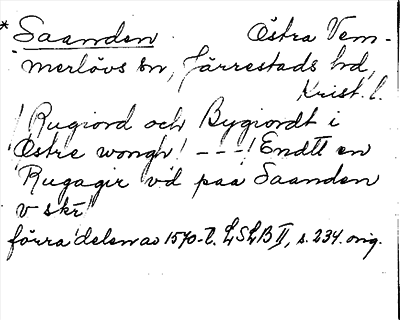 * Saanden. Östra Vem-
merlövs sn, Järrestads hd,
Krist. l.
! Rugiord och Bygiordt i
Østre wongh! - - -! Endtt en
Rugagir vid paa Saanden
v skr!
förra delen av 1570-t. LSLB II, s. 234. orig.